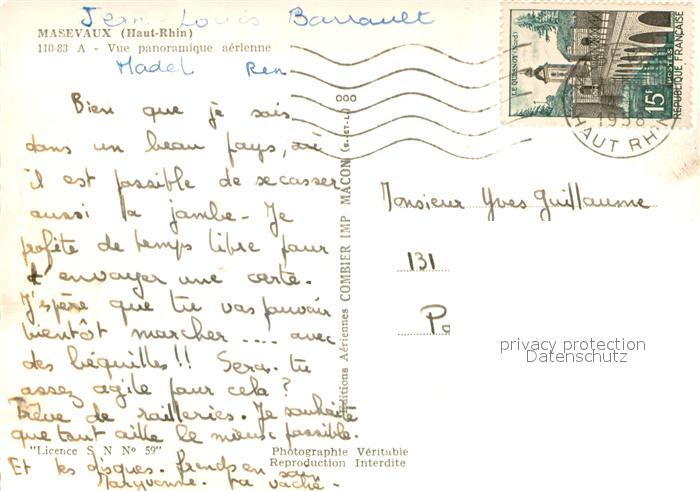 Jean-Louis Barrault
MASEVAUX (Haut-Rhin)
110-83 A - Vue panoramique aérienne
Madel Ren
Bien que je sois
dans un beau pays, où
il est possible de se casser
aussi la jambe - Je
profite de temps libre pour
t'envoyer une carte.
J'espère que tu vas pouvoir
bientôt marcher .... avec
des béquilles!! Seras-tu
assez agile pour cela?
Trêve de railleries. Je souhaite
que tout aille le mieux possible.
"Licence S N N° 59"
Et tes disques. Prends en soin
Maryvonne. ta vache -
Editions Aériennes COMBIER IMP MACON (S.-ET-L.)
Photographie Véritable
Reproduction Interdite
LE QUESNOY (Nord)
15F
POSTES
REPUBLIQUE FRANÇAISE
1958
HAUT RHIN
Monsieur Yves Guillaume
131
Pa
privacy protection
Datenschutz